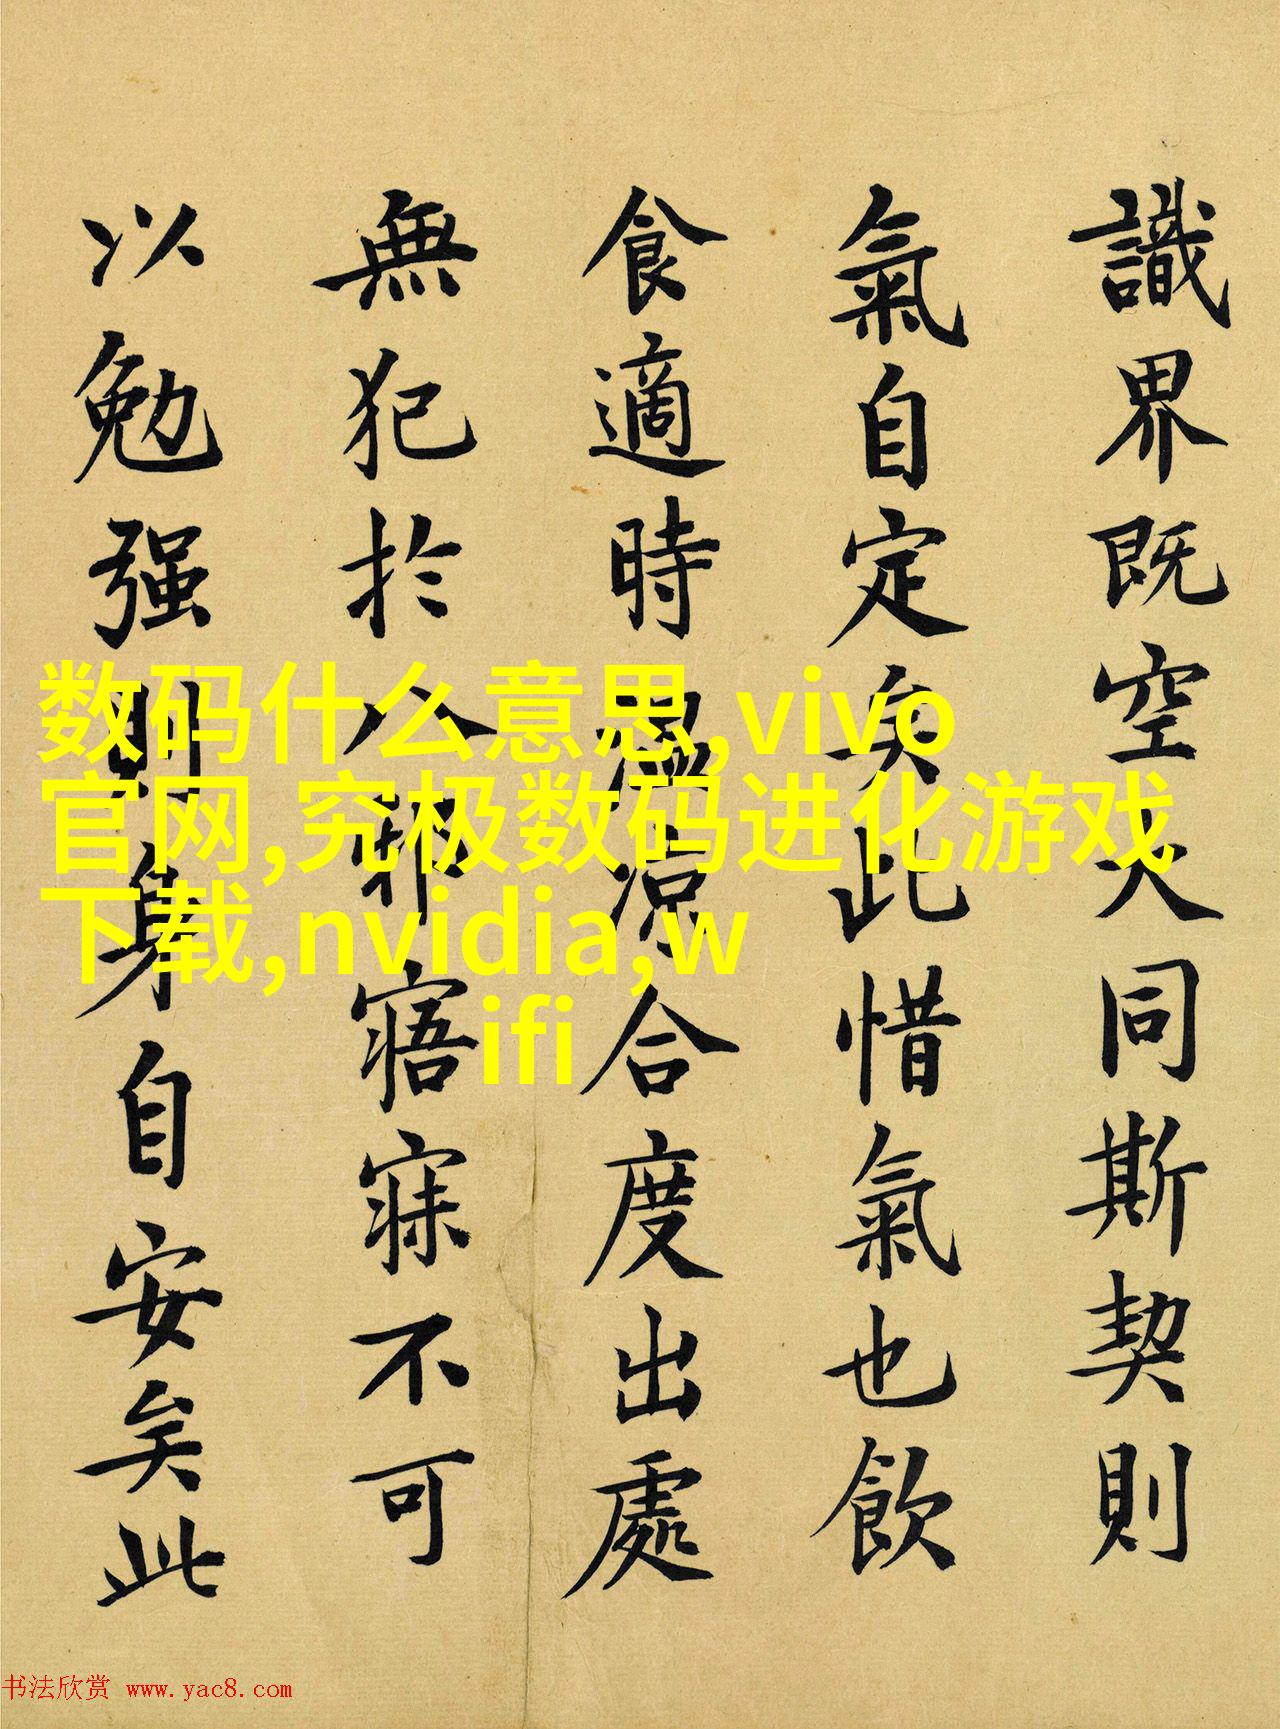 識界既空大同斯契則
氣自定矣此惜氣也飲
食適時温凉合度出處
無犯於八邪寤寐不可
以勉强則身自安矣此
数码什么意思,vivo
官网,究极数码进化游戏
下载,nvidia,w
ifi
书法欣赏 www.yac8.com